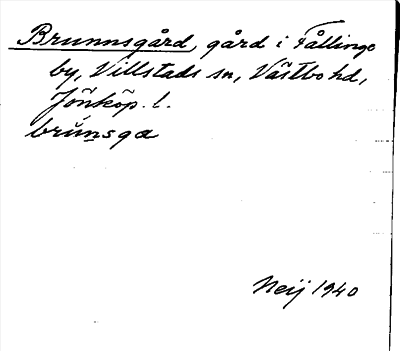 Brunnsgård, gård i Fållinge
by, Villstads sn, Västbo hd,
Jönköp. l.
brúnsga
Neij 1940